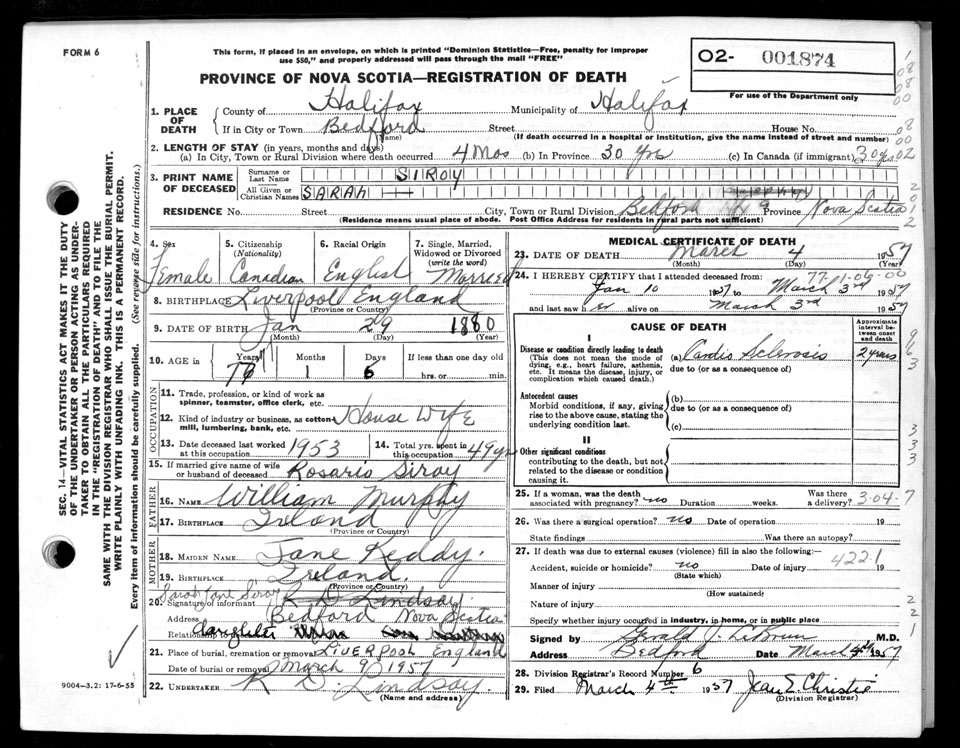 FORM 6
This form, if placed in an envelope, on which is printed "Dominion Statistics—Free, penalty for improper
use $50," and properly addressed will pass through the mail "FREE"
O2- 001874
For use of the Department only
PROVINCE OF NOVA SCOTIA—REGISTRATION OF DEATH
1. PLACE OF DEATH
County of Halifax Municipality of Halifax
If in City or Town Bedford Street House No.
(Name) (If death occurred in a hospital or institution, give the name instead of street and number)
2. LENGTH OF STAY (in years, months and days)
(a) In City, Town or Rural Division where death occurred 4 Mos (b) In Province 30 yrs (c) In Canada (if immigrant) 30 yrs.
3. PRINT NAME OF DECEASED
Surname or Last Name SIROY
All Given or Christian Names SARAH
RESIDENCE No. Street City, Town or Rural Division Bedford Hfx Province Nova Scotia
(Residence means usual place of abode. Post Office Address for residents in rural parts not sufficient)
4. Sex Female
5. Citizenship (Nationality) Canadian
6. Racial Origin English
7. Single, Married, Widowed or Divorced (write the word) Married
8. BIRTHPLACE Liverpool England
(Province or Country)
9. DATE OF BIRTH Jan 29 1880
(Month) (Day) (Year)
10. AGE in Years 77 Months 1 Days 6 If less than one day old
hrs. or min.
OCCUPATION
11. Trade, profession, or kind of work as
spinner, teamster, office clerk, etc.
12. Kind of industry or business, as cotton-
mill, lumbering, bank, etc. House Wife
13. Date deceased last worked at this occupation 1953
14. Total yrs. spent in this occupation 49 yrs
15. If married give name of wife
or husband of deceased Rosario Siroy
FATHER
16. NAME William Murphy
17. BIRTHPLACE Ireland
(Province or Country)
MOTHER
18. MAIDEN NAME Jane Reddy.
19. BIRTHPLACE Ireland.
(Province or Country)
Sarah Jane Siroy
20. Signature of informant R D Lindsay.
Address Bedford Nova Scotia
Relationship daughter
21. Place of burial, cremation or removal LIVERPOOL ENGLAND
Date of burial or removal March 9 1957
22. UNDERTAKER R D Lindsay.
(NAME AND ADDRESS)
MEDICAL CERTIFICATE OF DEATH
23. DATE OF DEATH March 4 1957
(Month) (Day) (Year)
77-06-00
24. I HEREBY CERTIFY that I attended deceased from:
Jan 10 1957 to March 3rd 1957
and last saw her alive on March 3rd 1957
CAUSE OF DEATH
Approximate interval between onset and death
I
Disease or condition directly leading to death
(This does not mean the mode of dying, e.g., heart failure, asthenia, etc. It means the disease, injury, or complication which caused death.)
(a) Cardio Sclerosis 2 years
due to (or as a consequence of)
Antecedent causes
Morbid conditions, if any, giving rise to the above cause, stating the underlying condition last.
(b)
due to (or as a consequence of)
(c)
II
Other significant conditions
contributing to the death, but not related to the disease or condition causing it.
25. If a woman, was the death associated with pregnancy? no Duration weeks. Was there a delivery?
3-04-7
26. Was there a surgical operation? no Date of operation 19
State findings Was there an autopsy?
27. If death was due to external causes (violence) fill in also the following:—
4221
Accident, suicide or homicide? no Date of injury 19
(State which)
Manner of injury
(How sustained)
Nature of injury
Specify whether injury occurred in industry, in home, or in public place
Signed by Gerald J. LeBrun M.D.
Address Bedford Date March 4th 1957
28. Division Registrar's Record Number 6
29. Filed March 4th 1957 Jean E. Christie
(Division Registrar)
SEC. 14—VITAL STATISTICS ACT MAKES IT THE DUTY
OF THE UNDERTAKER OR PERSON ACTING AS UNDER-
TAKER TO OBTAIN ALL THE PARTICULARS REQUIRED
IN THE "REGISTRATION OF DEATH" AND TO FILE THE
SAME WITH THE DIVISION REGISTRAR WHO SHALL ISSUE THE BURIAL PERMIT.
WRITE PLAINLY WITH UNFADING INK. THIS IS A PERMANENT RECORD.
Every item of information should be carefully supplied. (See reverse side for instructions.)
9004-3.2: 17-6-55